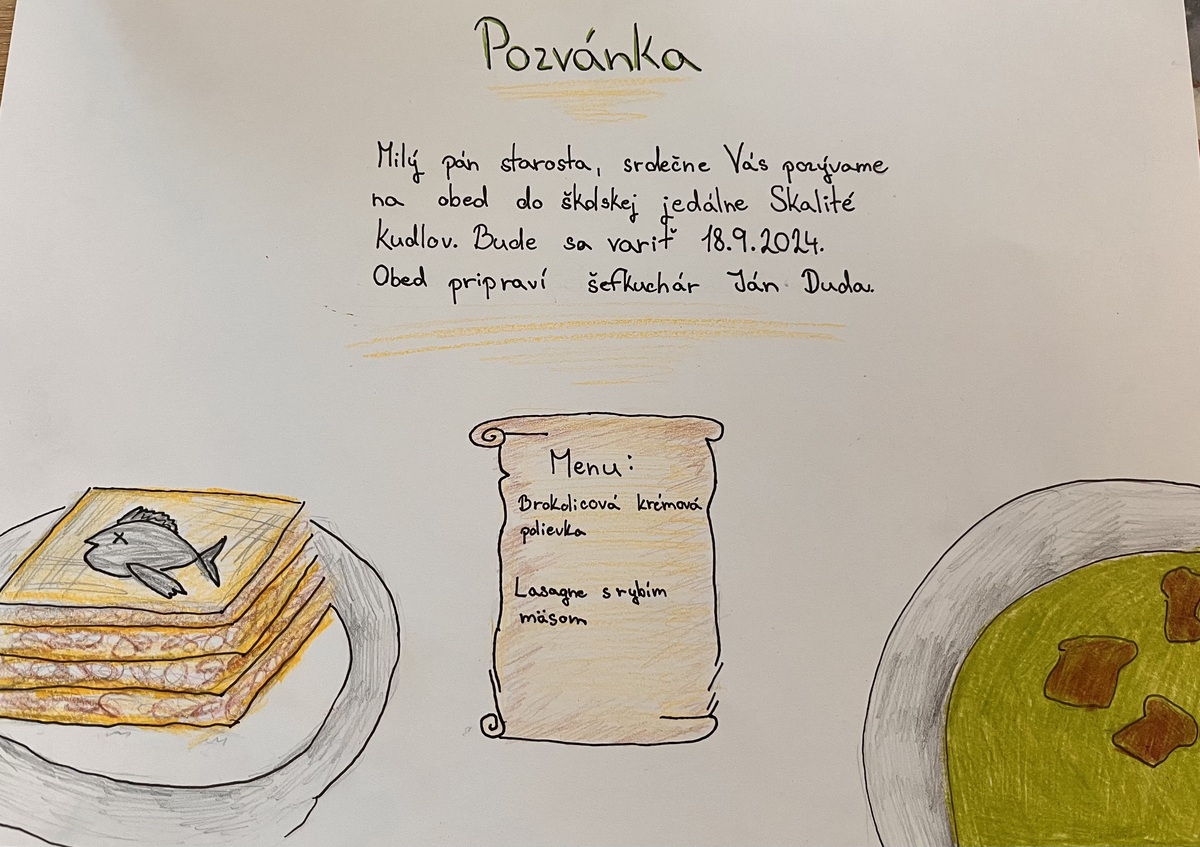 Pozvánka
Milý pán starosta, srdečne Vás pozývame
na obed do školskej jedálne Skalité
Kudlov. Bude sa variť 18.9.2024.
Obed pripraví šéfkuchár Ján Duda.
Menu:
Brokolicová krémová
polievka
Lasagne s rybím
mäsom